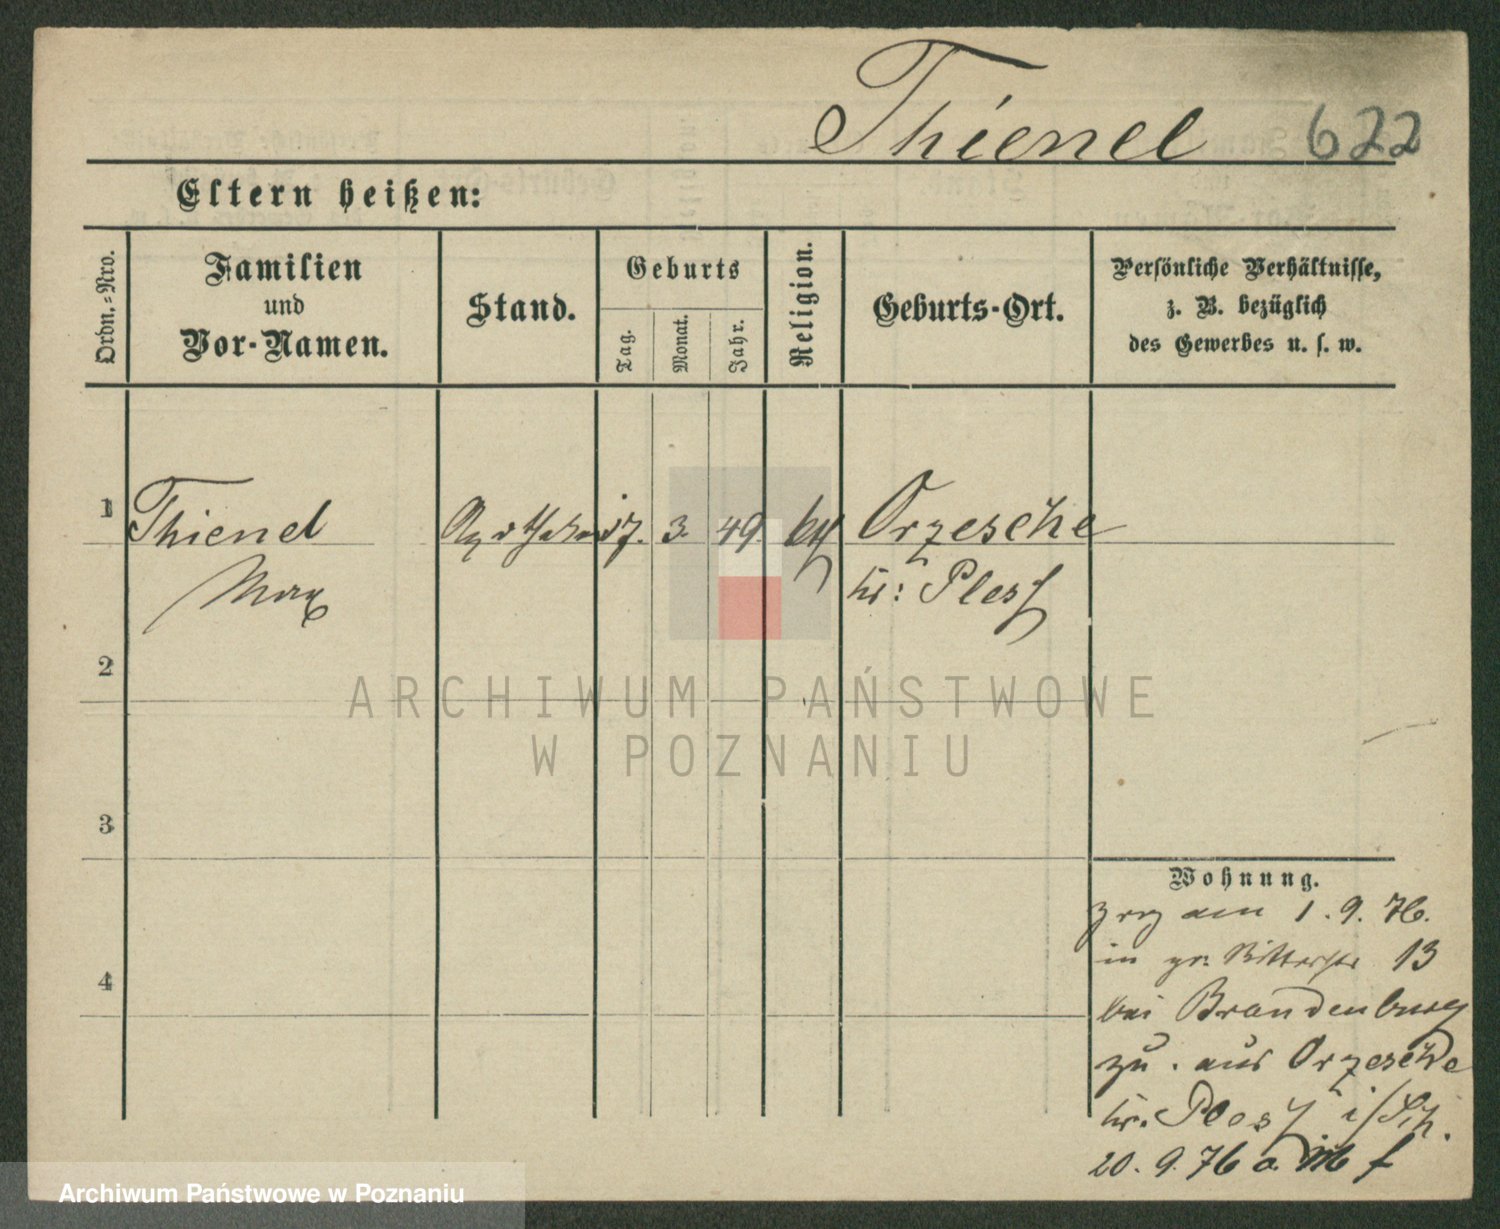 Thienel 622
Eltern heißen:
Ordn.=Nro.
Familien
und
Vor-Namen.
Stand.
Geburts
Tag.
Monat.
Jahr.
Religion.
Geburts-Ort.
Persönliche Verhältnisse,
z. B. bezüglich
des Gewerbes u. s. w.
1 Thienel Apotheker 17. 3. 49. kth Orzesche
Max kr: Pless
2
ARCHIWUM PAŃSTWOWE
W POZNANIU
3
Wohnung.
am 1. 9. 76.
in gr. Ritterstr 13
4
bei Brandenburg
zu. aus Orzesche
kr. Pless i/Sch.
20. 9. 76
Archiwum Państwowe w Poznaniu